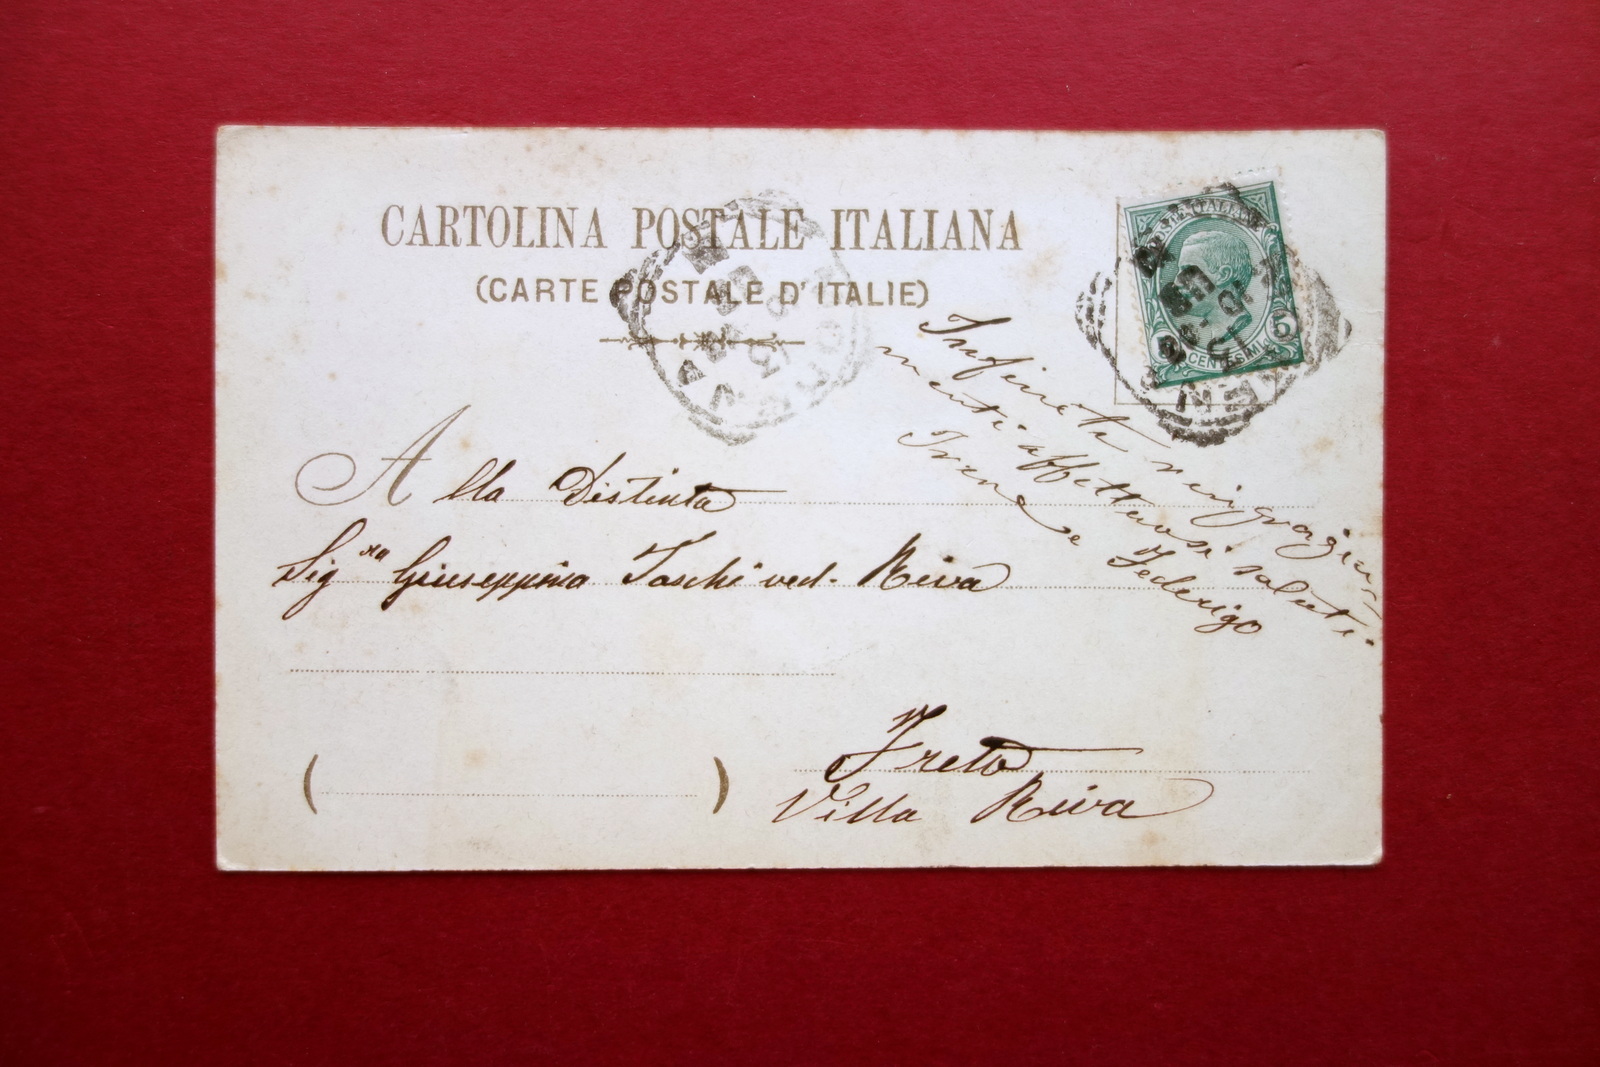 CARTOLINA POSTALE ITALIANA
(CARTE POSTALE D'ITALIE)
POSTE ITALIANE
5
CENTESIMI
Infiniti ringraziamenti
affettuosi saluti
Irene e Federigo
Alla Distinta
Sig.ra Giuseppina Taschi ved. Riva
Villa Riva